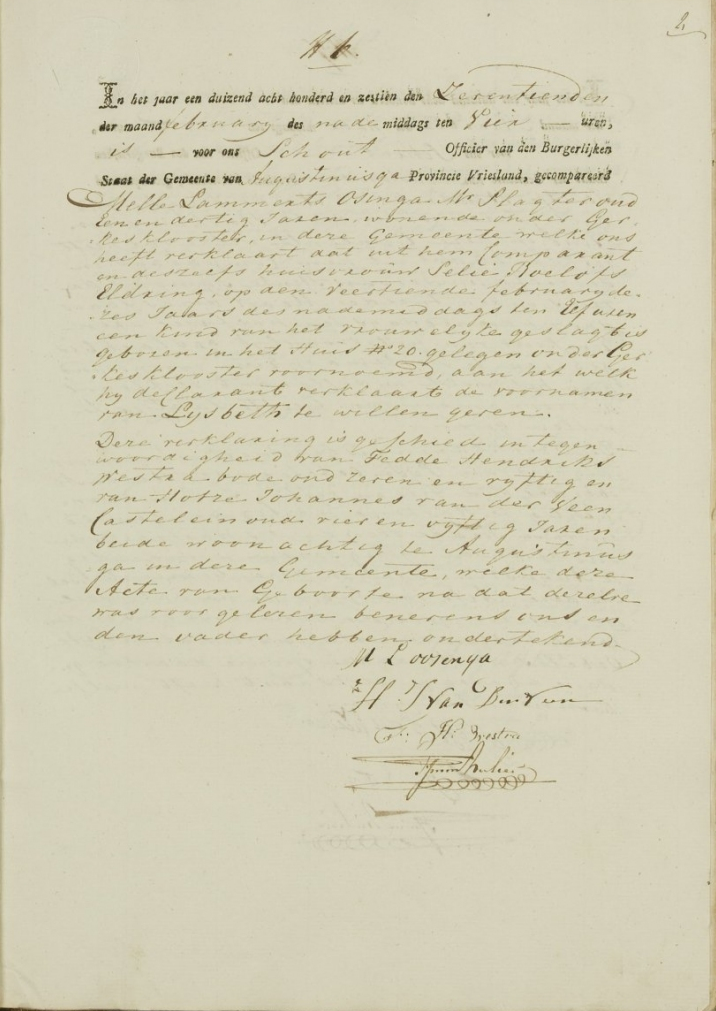 2
N 6.
In het jaar een duizend acht honderd en zestien den Zeventienden
der maand february des nademiddags ten Vier — uren,
is — voor ons Schout — Officier van den Burgerlijken
Staat der Gemeente van Augustinusga Provincie Vriesland, gecompareerd
Melle Lammerts Osinga Mr Slagter oud
eenen dertig Jaren, wonende onder Ger,
keskloooster, in deze Gemeente welke ons
heeft verklaart dat uit hem Comparant
en deszelfs huisvrouw Selie Roelofs
Eldring, op den veertiende february de,
zes Jaars des nademiddags ten Elf uren
een kind van het vrouwelyke geslagt is
geboren in het Huis No 20. gelegen onder Ger
keskloooster voornoemd, aan het welk
hy declarant verklaart de voornamen
van Lysbeth te willen geven.
Deze verklaring is geschied in tegen
woordigheid van Fedde Hendriks
Westra bode oud zeven en vyftig en
van Hotze Johannes van der Veen
Castelein oud vier en vyftig Jaren
beide woonachtig te Augustinus
ga in deze Gemeente, welke deze
Acte van Geboorte na dat dezelve
was voorgelezen benevens ons en
den vader hebben ondertekend.
M L oosenga
H. J. Van Der Veen
F: H: Westra